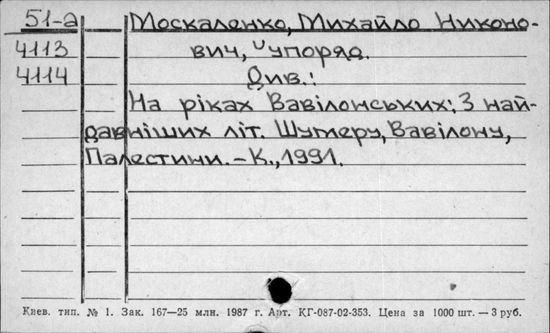 51-а Москаленко, Михайло Никоно-
4113 вич, упоряд.
4114 Див.:
На ріках Вавілонських: З най-
давніших літ. Шумеру, Вавілону,
Палестини. – К., 1991.
Киев. тип. № 1. Зак. 167—25 млн. 1987 г. Арт. КГ-087-02-353. Цена за 1000 шт. — 3 руб.